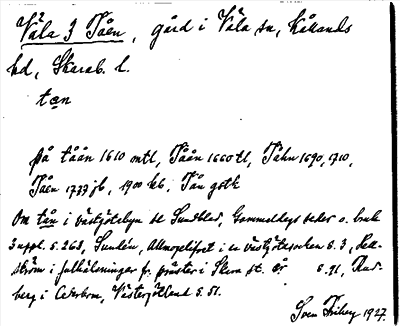 Våla 3 Tåen, gård i Våla sn, Kållands
hd, Skarab. l.
tan
på tåån 1610 mtl, Tåån 1660 tl, Tåhn 1690, 1710,
Tåen 1739 jb, 1900 kb, Tån gstk
Om tån i västgötabyn se Sundblad, Gammaldags seder o. bruk
3 uppl. s. 268, Sundén, Allmogelifvet i en västgötasocken s. 3,
i folkäkningar fr. präster i Skara st. är s. 91,
berg i Cederbom, Västergötland s. 51.
Sven 1927.